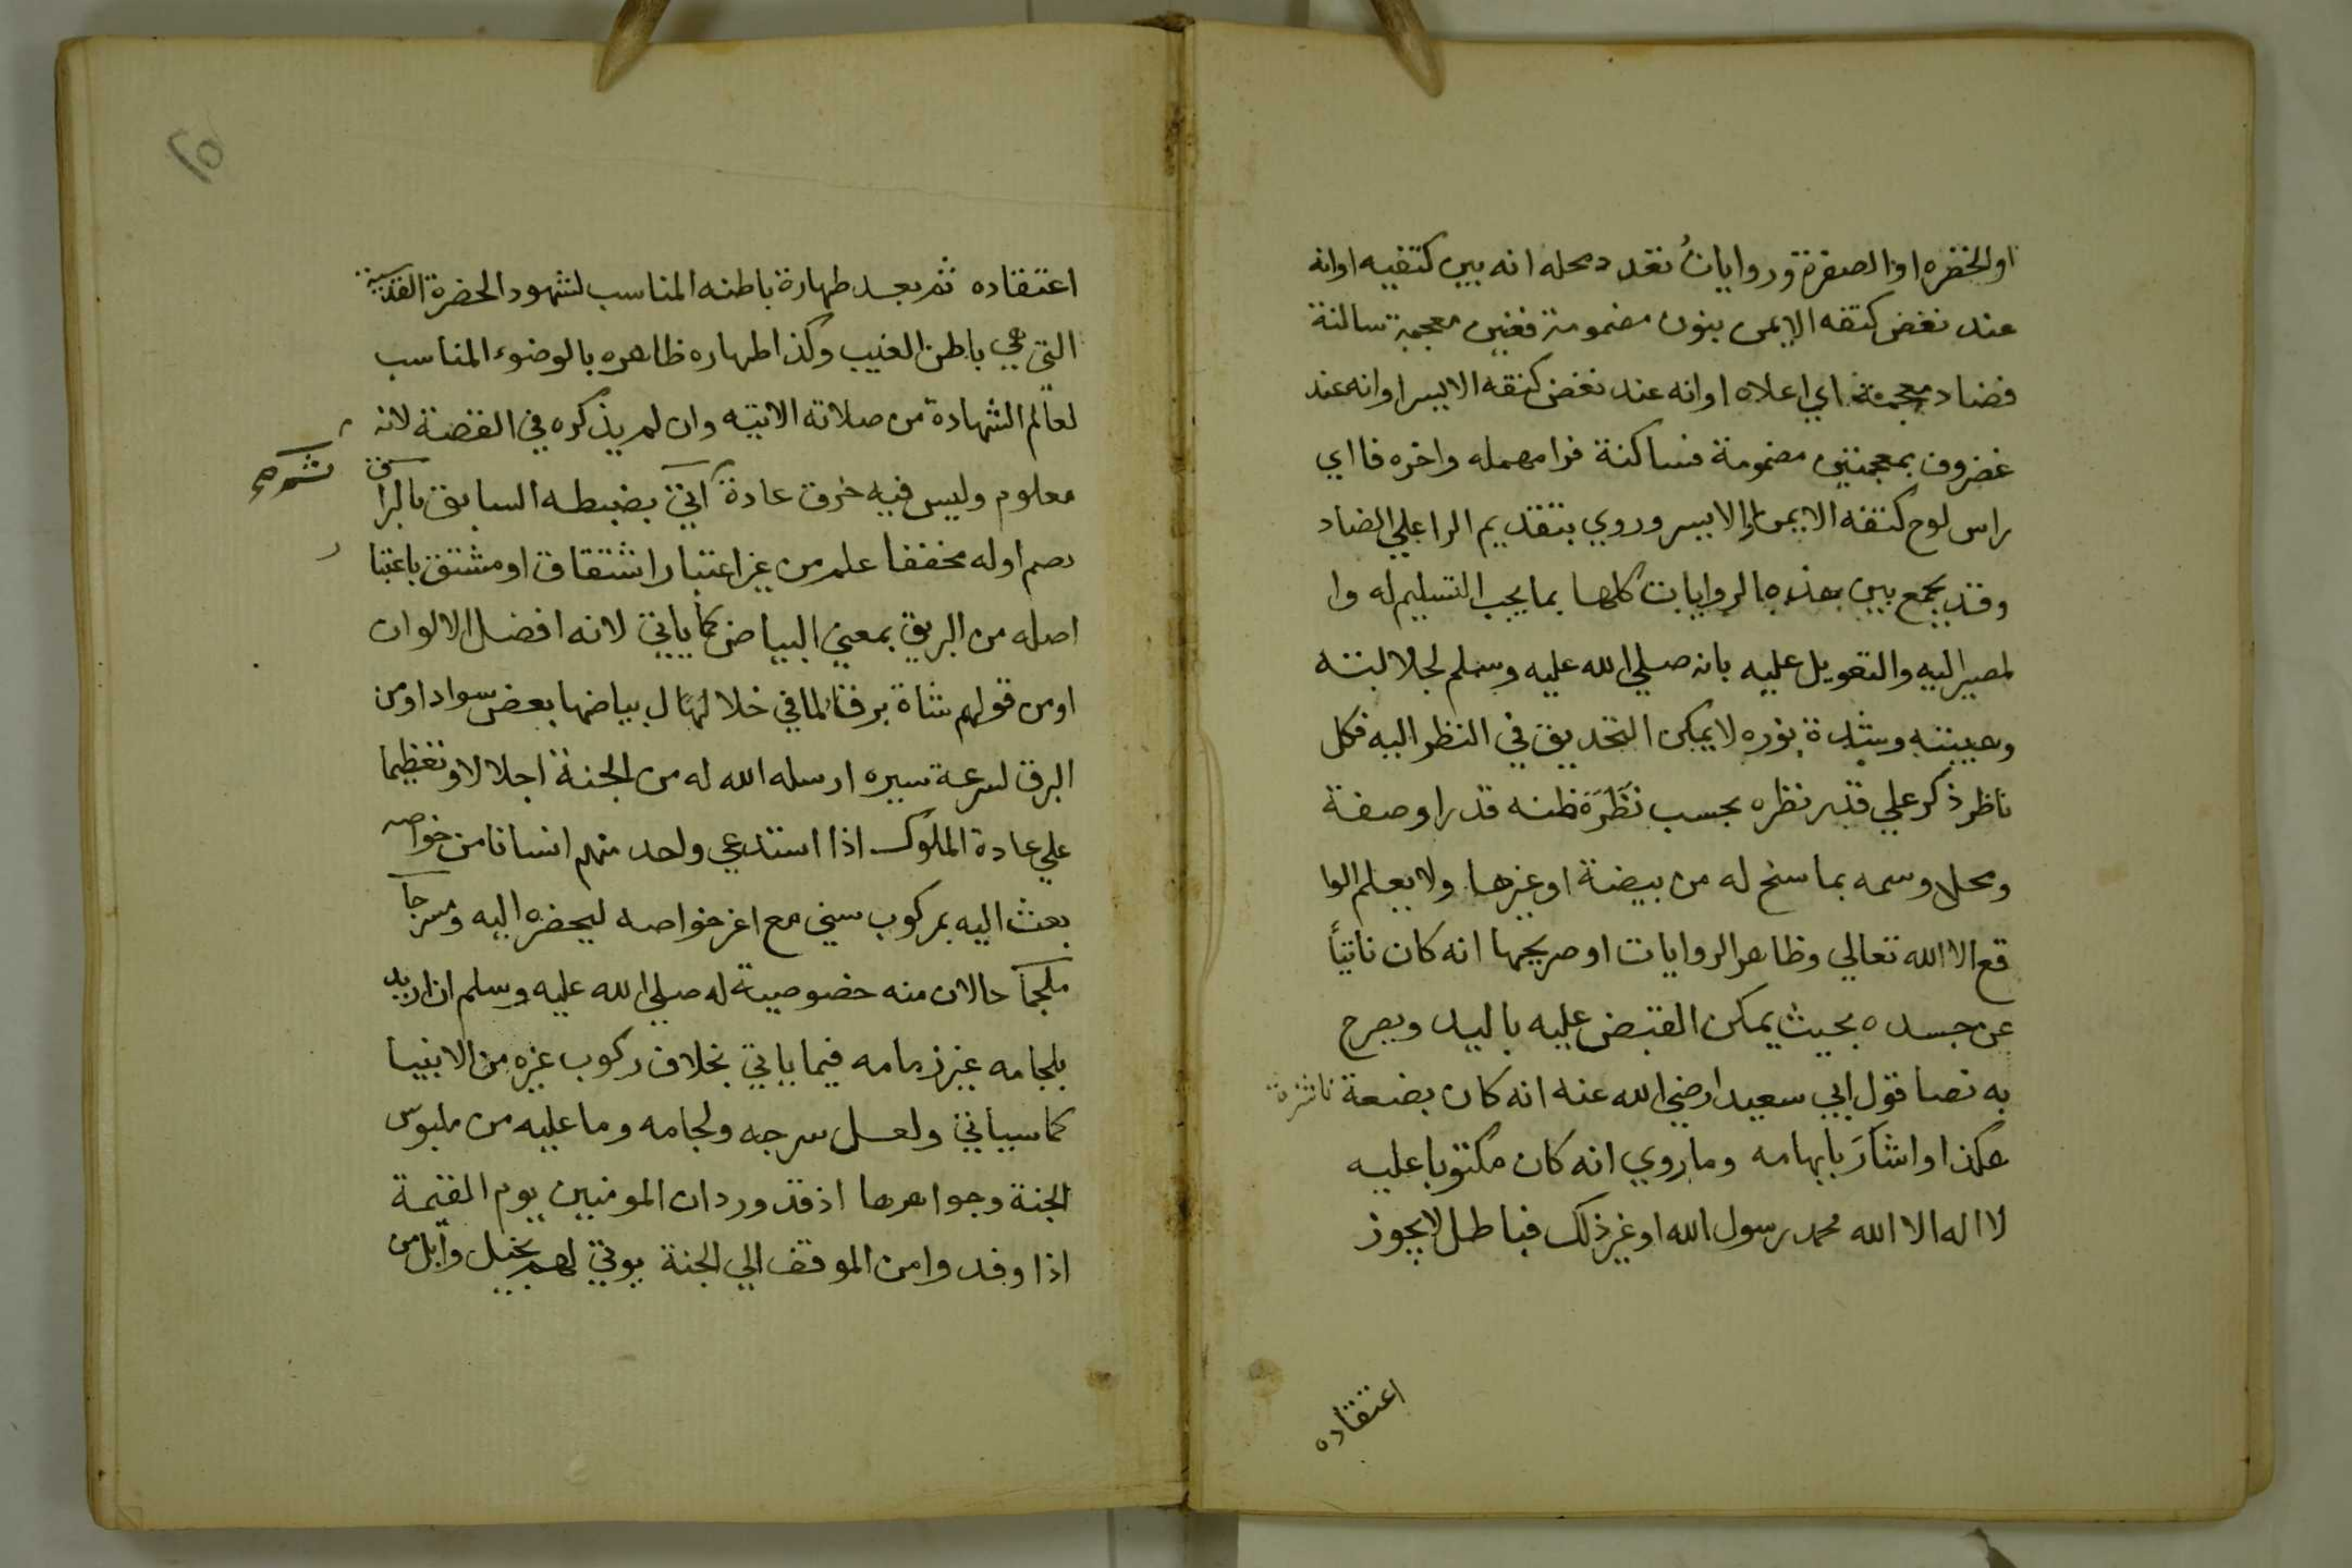 او الخضره او الصفرة وروايات تعدد محله انه بين كتفيه او انه
عند نغض كتفه الايمن بنون مضمومة فغين معجمة ساكنة
فضاد معجمة اي اعلاه او انه عند نغض كتفه الايسر او انه عند
غضروف بمعجمتين مضمومة فساكنة فرا مهمله واخره فا اي
راس لوح كتفه الايمن او الايسر وروي بتقديم الرا علي الضاد
وقد يجمع بين هذه الروايات كلها بما يجب التسليم له وا
لمصير اليه والتعويل عليه بانه صلي الله عليه وسلم لجلالته
وهيبته وشدة نوره لا يمكن التحديق في النظر اليه فكل
ناظر ذكر علي قدر نظره بحسب نَظَرَة ظنه قدرا وصفة
ومحل وسمه بما سنح له من بيضة او غيرها ولا يعلم الوا
قع الا الله تعالي وظاهر الروايات او صريحها انه كان ناتيأ
عن جسده بحيث يمكن القبض عليه باليد ويصرح
به نصا قول ابي سعيد رضي الله عنه انه كان بضعة ناشزة
هكذا واشار بابهامه وما روي انه كان مكتوبا عليه
لا اله الا الله محمد رسول الله او غير ذلك فباطل لا يجوز
اعتقاده
٢٥
اعتقاده ثم بعد طهارة باطنه المناسب لشهود الحضرة القدسية
التي هي باطن الغيب وكذا طهاره ظاهره بالوضوء المناسب
لعالم الشهادة من صلاته الاتيه وان لم يذكره في القصة لانه
معلوم وليس فيه خرق عادة أتي بضبطه السابق بالبراق
بضم اوله مخففا علم من غير اعتبار اشتقاق او مشتق باعتبا
ر
اصله من البريق بمعني البياض كما ياتي لانه افضل الالوان
او من قولهم شاة برقا لما في خلال بياضها بعض سواد او من
البرق لسرعة سيره ارسله الله له من الجنة اجلالا وتعظيما
علي عادة الملوك اذا استدعي واحد منهم انسانا من خواصه
بعث اليه بمركوب سني مع اعز خواصه ليحضره اليه ومسرجا
ملجما حالان منه خصوصية له صلي الله عليه وسلم ان اريد
بلجامه غير زمامه فيما ياتي بخلاف ركوب غيره من الانبيا
كما سياتي ولعل سرجه ولجامه وما عليه من ملبوس
الجنة وجواهرها اذ قد ورد ان المومنين يوم القيمة
اذا وفدوا من الموقف الي الجنة يوتي لهم بخيل وابل من